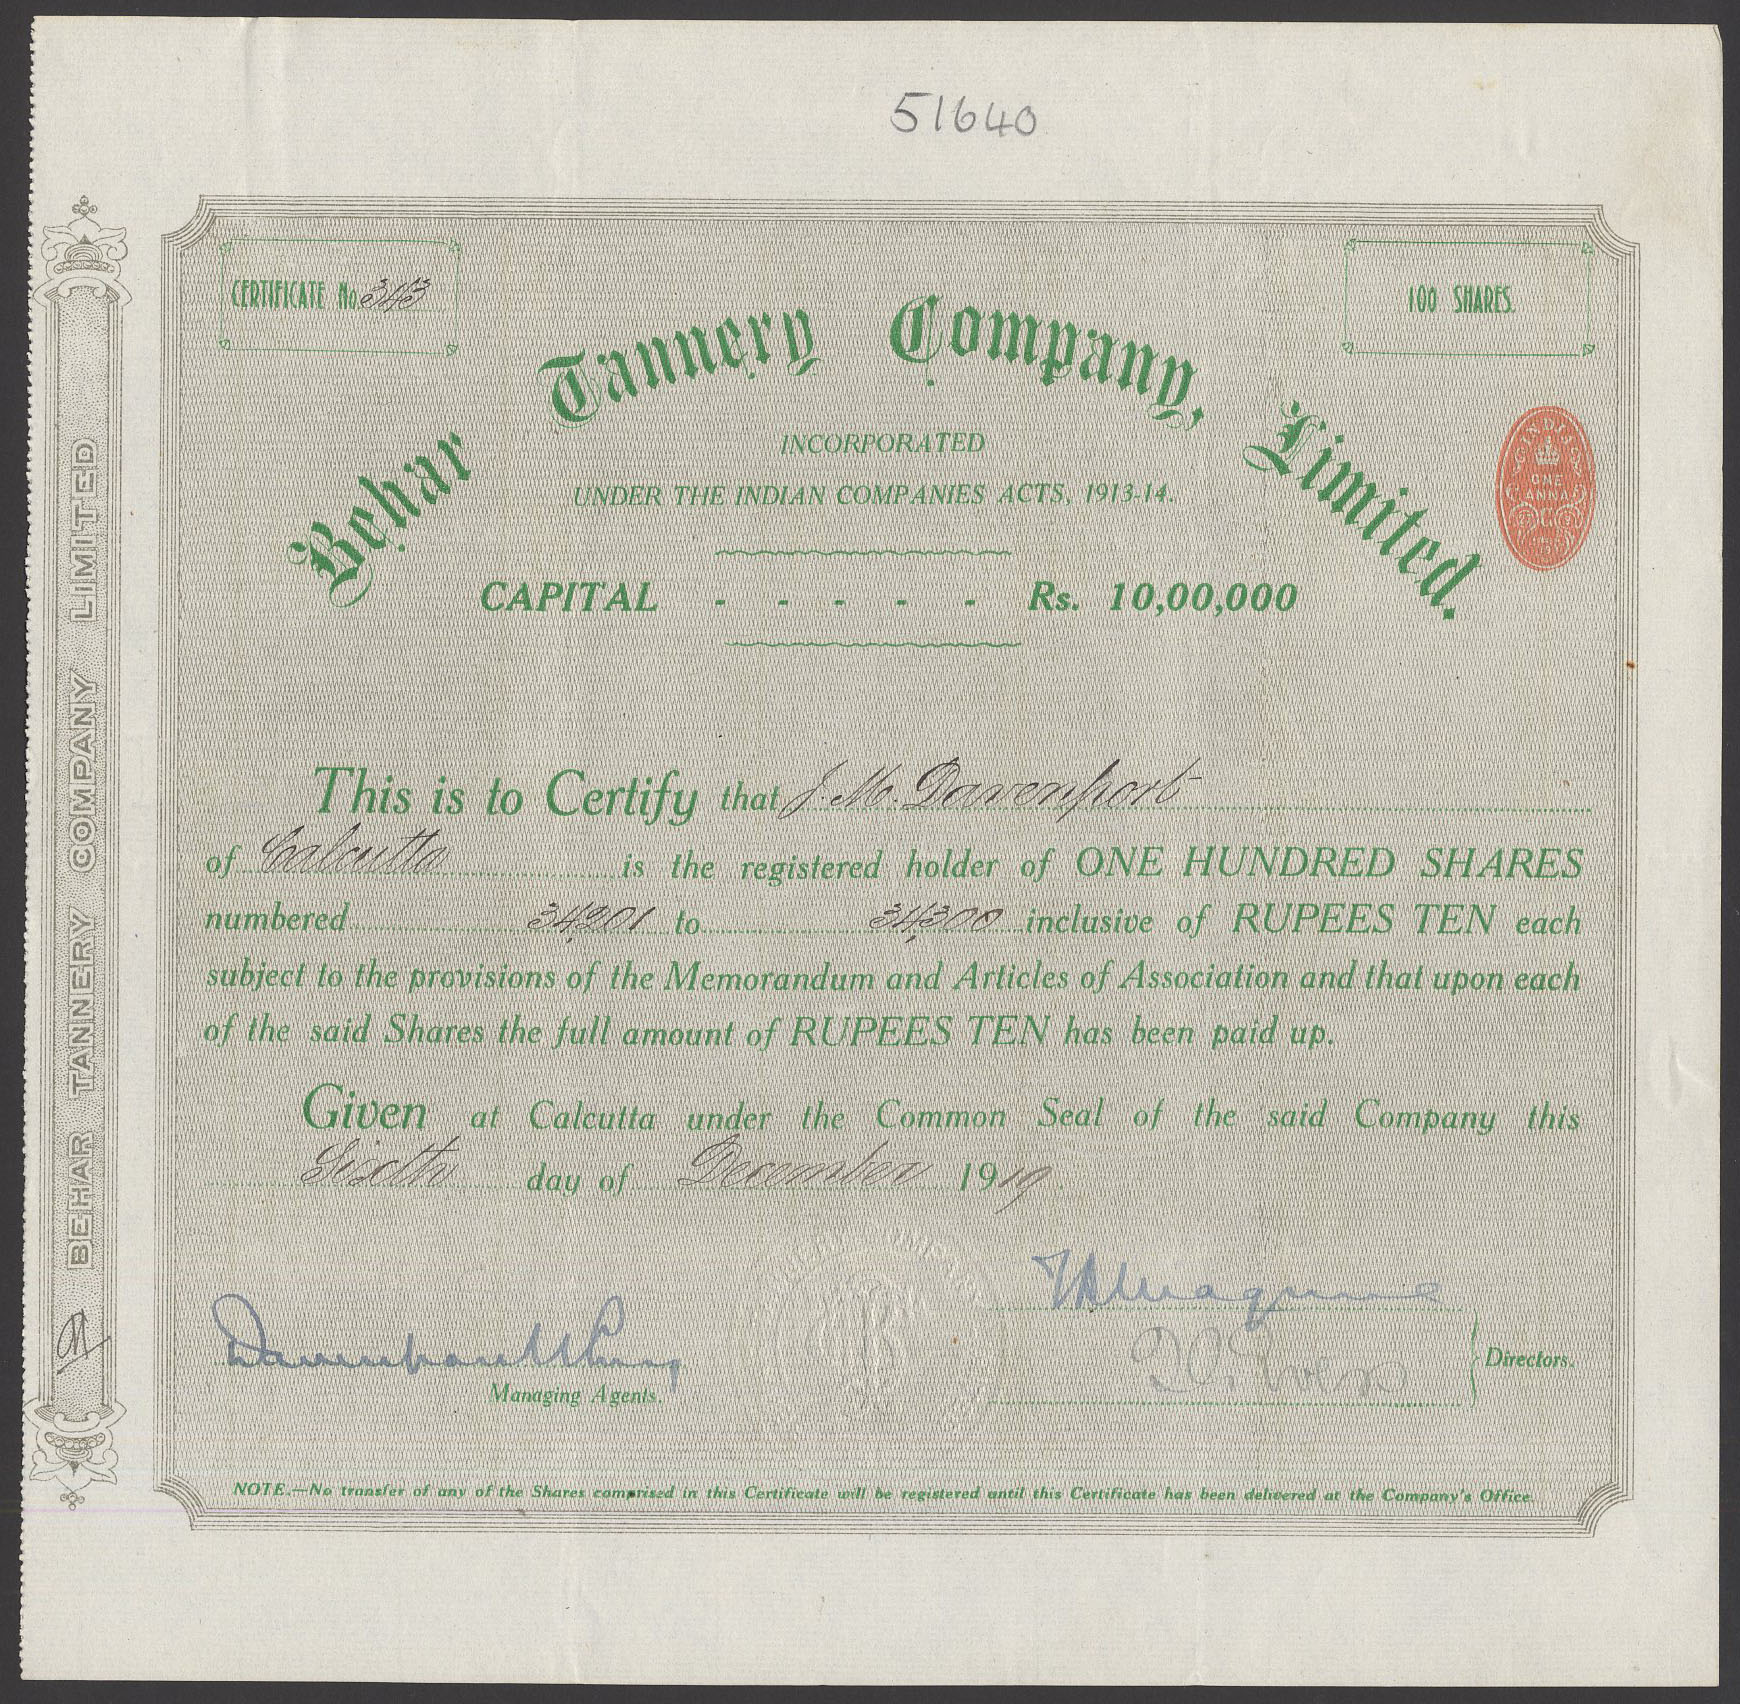 51640
CERTIFICATE No. 343
100 SHARES.
Behar Tannery Company, Limited.
INCORPORATED
UNDER THE INDIAN COMPANIES ACTS, 1913-14.
INDIA
ONE
ANNA
CAPITAL - - - - - Rs. 10,00,000
This is to Certify that J. M. Davenport
of Calcutta is the registered holder of ONE HUNDRED SHARES
numbered 34,201 to 34,300 inclusive of RUPEES TEN each
subject to the provisions of the Memorandum and Articles of Association and that upon each
of the said Shares the full amount of RUPEES TEN has been paid up.
Given at Calcutta under the Common Seal of the said Company this
Sixth day of December 1919
Managing Agents.
Directors.
NOTE.—No transfer of any of the Shares comprised in this Certificate will be registered until this Certificate has been delivered at the Company's Office.
BEHAR TANNERY COMPANY LIMITED